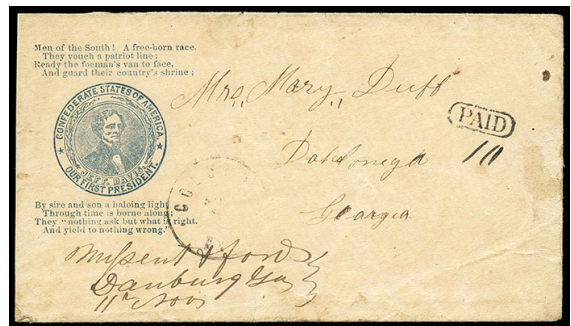 Men of the South! A free-born race,
They vouch a patriot line;
Ready the foeman's van to face,
And guard their country's shrine;
CONFEDERATE STATES OF AMERICA
JEFF. DAVIS
OUR FIRST PRESIDENT.
By sire and son a haloing light
Through time is borne along;
They "nothing ask but what is right,
And yield to nothing wrong."
Mrs, Mary, Duff
PAID
10
Dahlonega
Georgia
Missent & ford
Danburg Ga
11th Nov